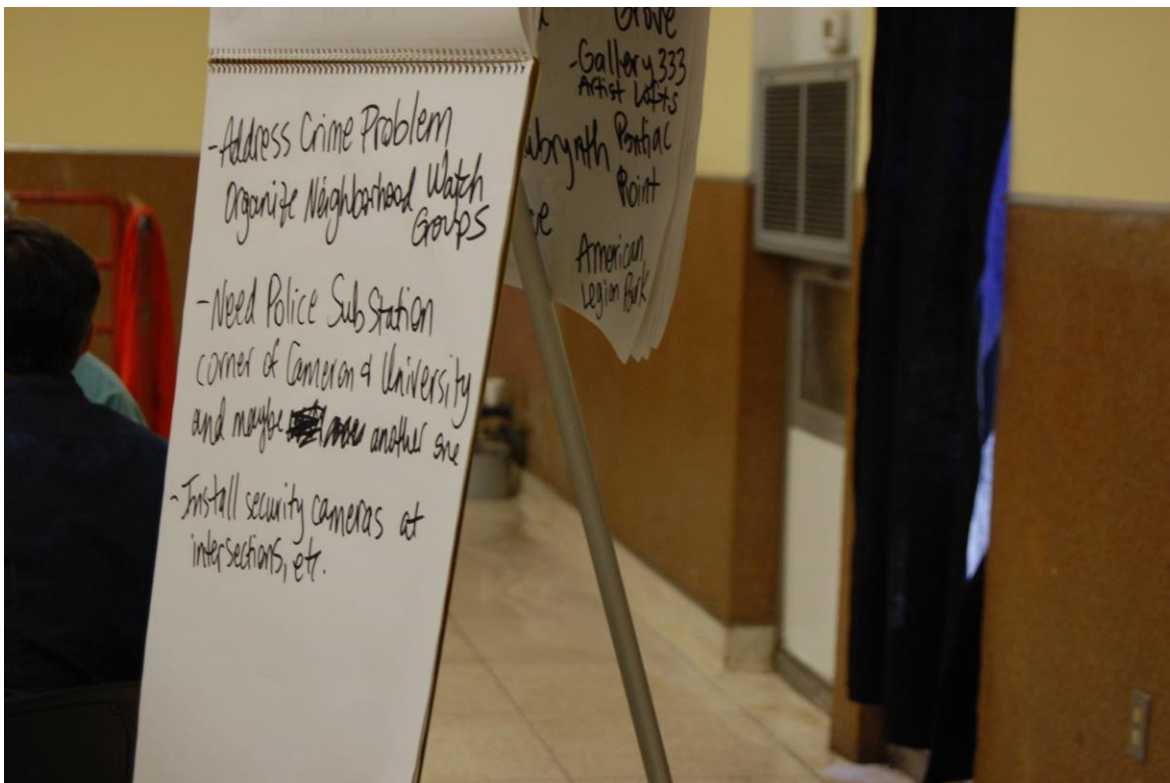 -Address Crime Problem
Organize Neighborhood Watch
Groups
-Need Police Sub Station
corner of Cameron & University
and maybe another one
-Install security cameras at
intersections, etc.
Grove
-Gallery 333
Artist Lofts
Pontiac
Point
American
Legion Park